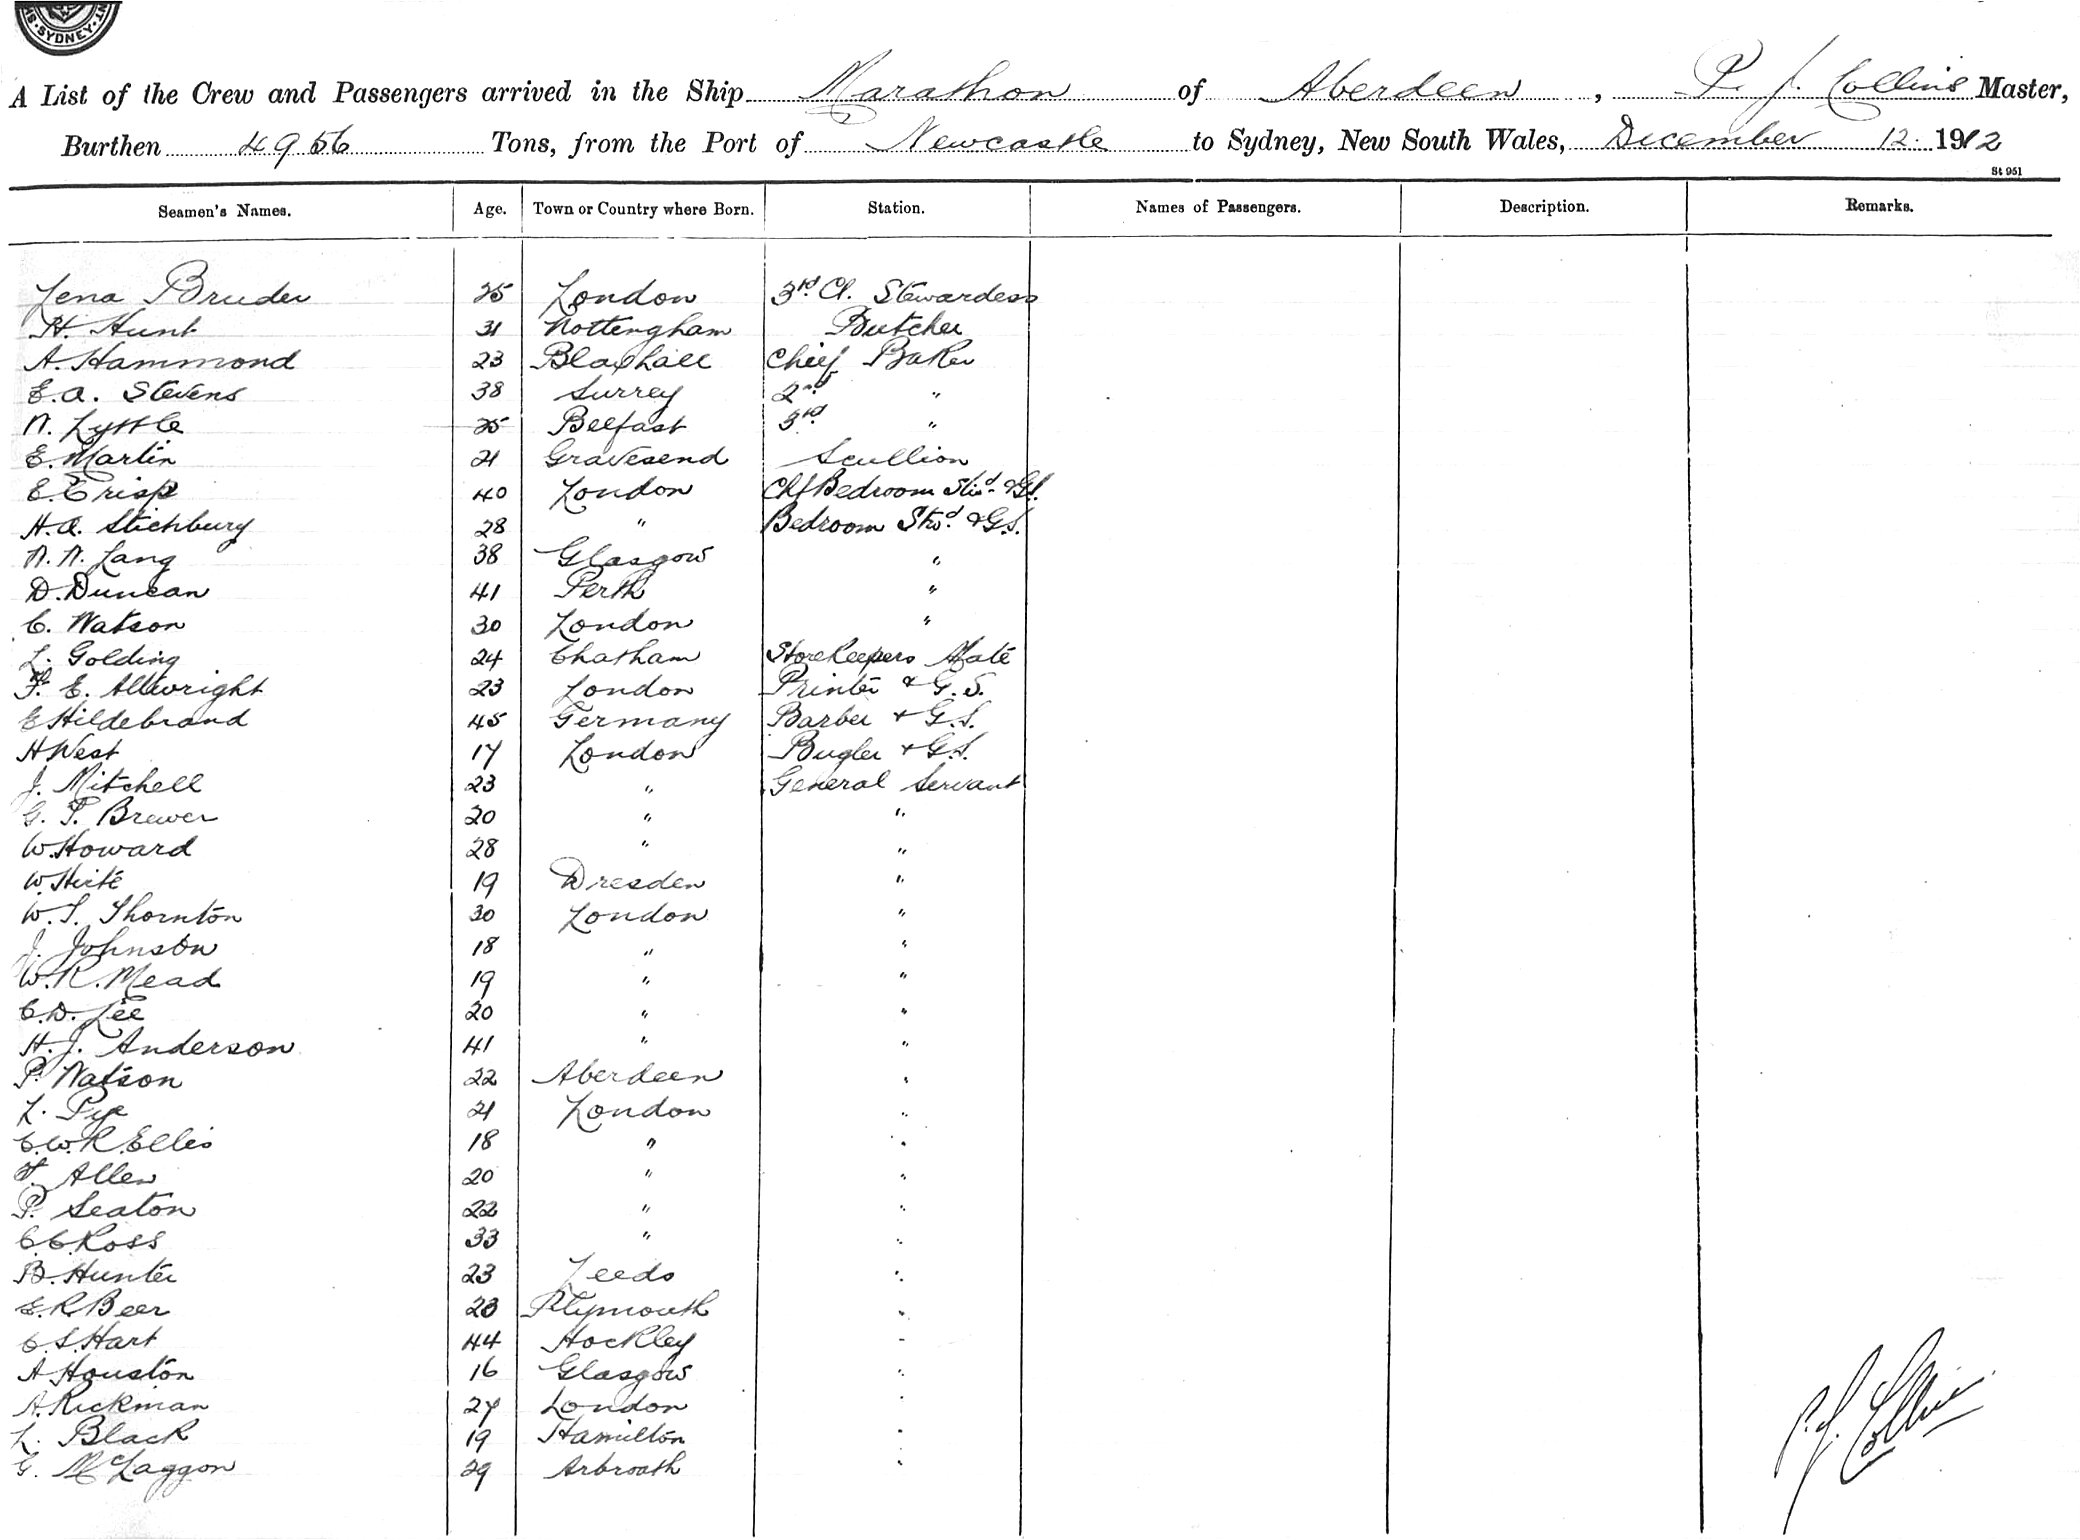 SYDNEY
A List of the Crew and Passengers arrived in the Ship Marathon of Aberdeen, P. J. Collins Master,
Burthen 4956 Tons, from the Port of Newcastle to Sydney, New South Wales, December 12. 1912
St 951
Seamen's Names. Age. Town or Country where Born. Station. Names of Passengers. Description. Remarks.
Lena Bruder 25 London 3rd Cl. Stewardess
H. Hunt 31 Nottengham Butcher
A. Hammond 23 Blaxhall Chief Baker
E. A. Stevens 38 Surrey 2nd "
W. Lyttle 25 Belfast 3rd "
E. Martin 21 Gravesend Scullion
E. Crisp 40 London Chf Bedroom Stwd. & G.S.
H. A. Stichbury 28 " Bedroom Stwd. & G.S.
W. W. Lang 38 Glasgow "
D. Duncan 41 Perth "
C. Watson 30 London "
L. Golding 24 Chatham Storekeepers Mate
F. E. Allwright 23 London Printer & G.S.
E Hildebrand 45 Germany Barber & G.S.
H West 17 London Bugler & G.S.
J. Mitchell 23 " General Servant
G. P. Brewer 20 " "
W. Howard 28 " "
W. Hirte 19 Dresden "
W. S. Thornton 30 London "
J. Johnson 18 " "
W. R. Mead 19 " "
C. D. Lee 20 " "
H. J. Anderson 41 " "
P. Watson 22 Aberdeen "
L. Pye 21 London "
C. W. R. Ellis 18 " "
F. Allen 20 " "
P. Seaton 22 " "
C. C. Ross 33 " "
B. Hunter 23 Leeds "
E. R. Beer 23 Plymouth "
C. S. Hart 44 Hockley "
A Houston 16 Glasgow "
A. Rickman 27 London "
L. Black 19 Hamilton "
G. McLaggon 29 Arbroath "
P. J. Collins